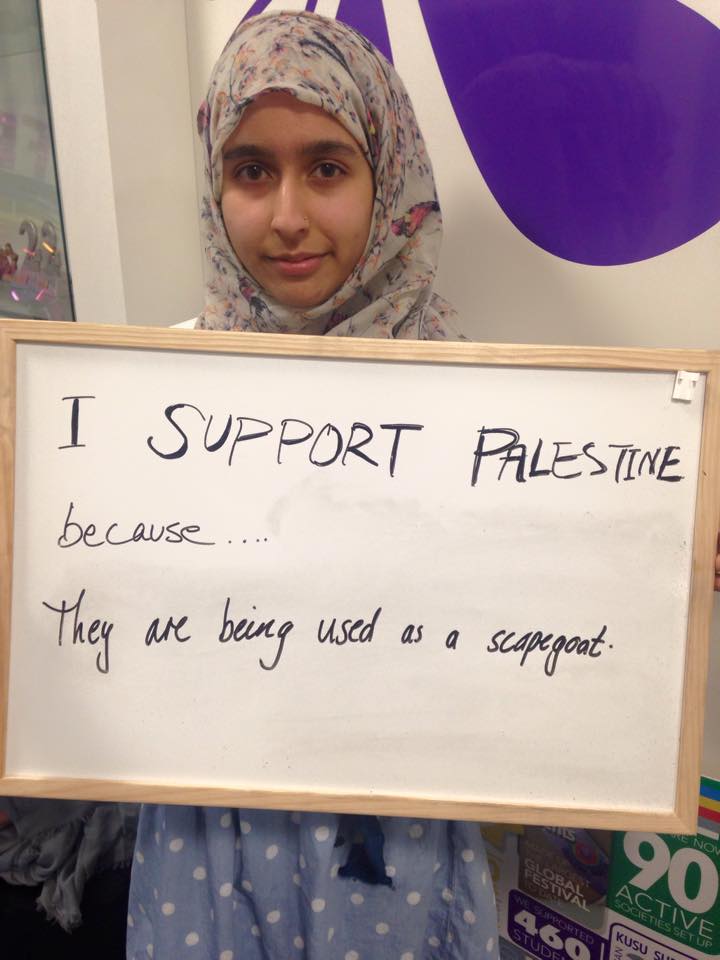 I SUPPORT PALESTINE
because....
They are being used as a scapegoat.
GLOBAL
FESTIVAL
WE SUPPORTED
460
90
ACTIVE
SOCIETIES SET UP
KUSU